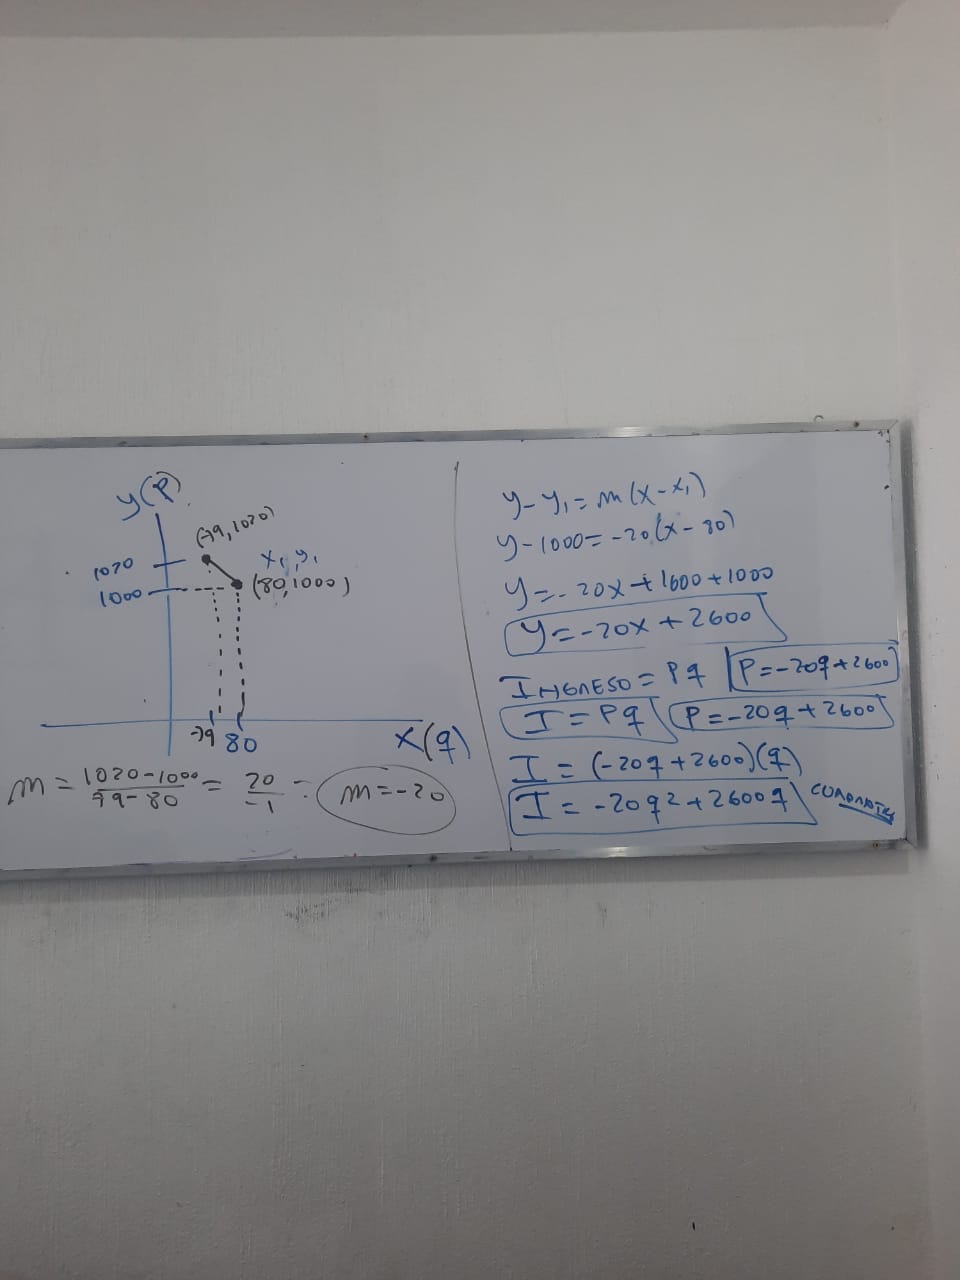 y(P)
(79,1020)
1020
x₁ y₁
1000
(80,1000)
79 80
x(q)
m = 1020-1000 / 79-80 = 20 / -1 = m=-20
y-y₁=m(x-x₁)
y-1000=-20(x-80)
y=-20x+1600+1000
y=-20x+2600
INGRESO=Pq P=-20q+2600
I=Pq P=-20q+2600
I=(-20q+2600)(q)
I=-20q²+2600q